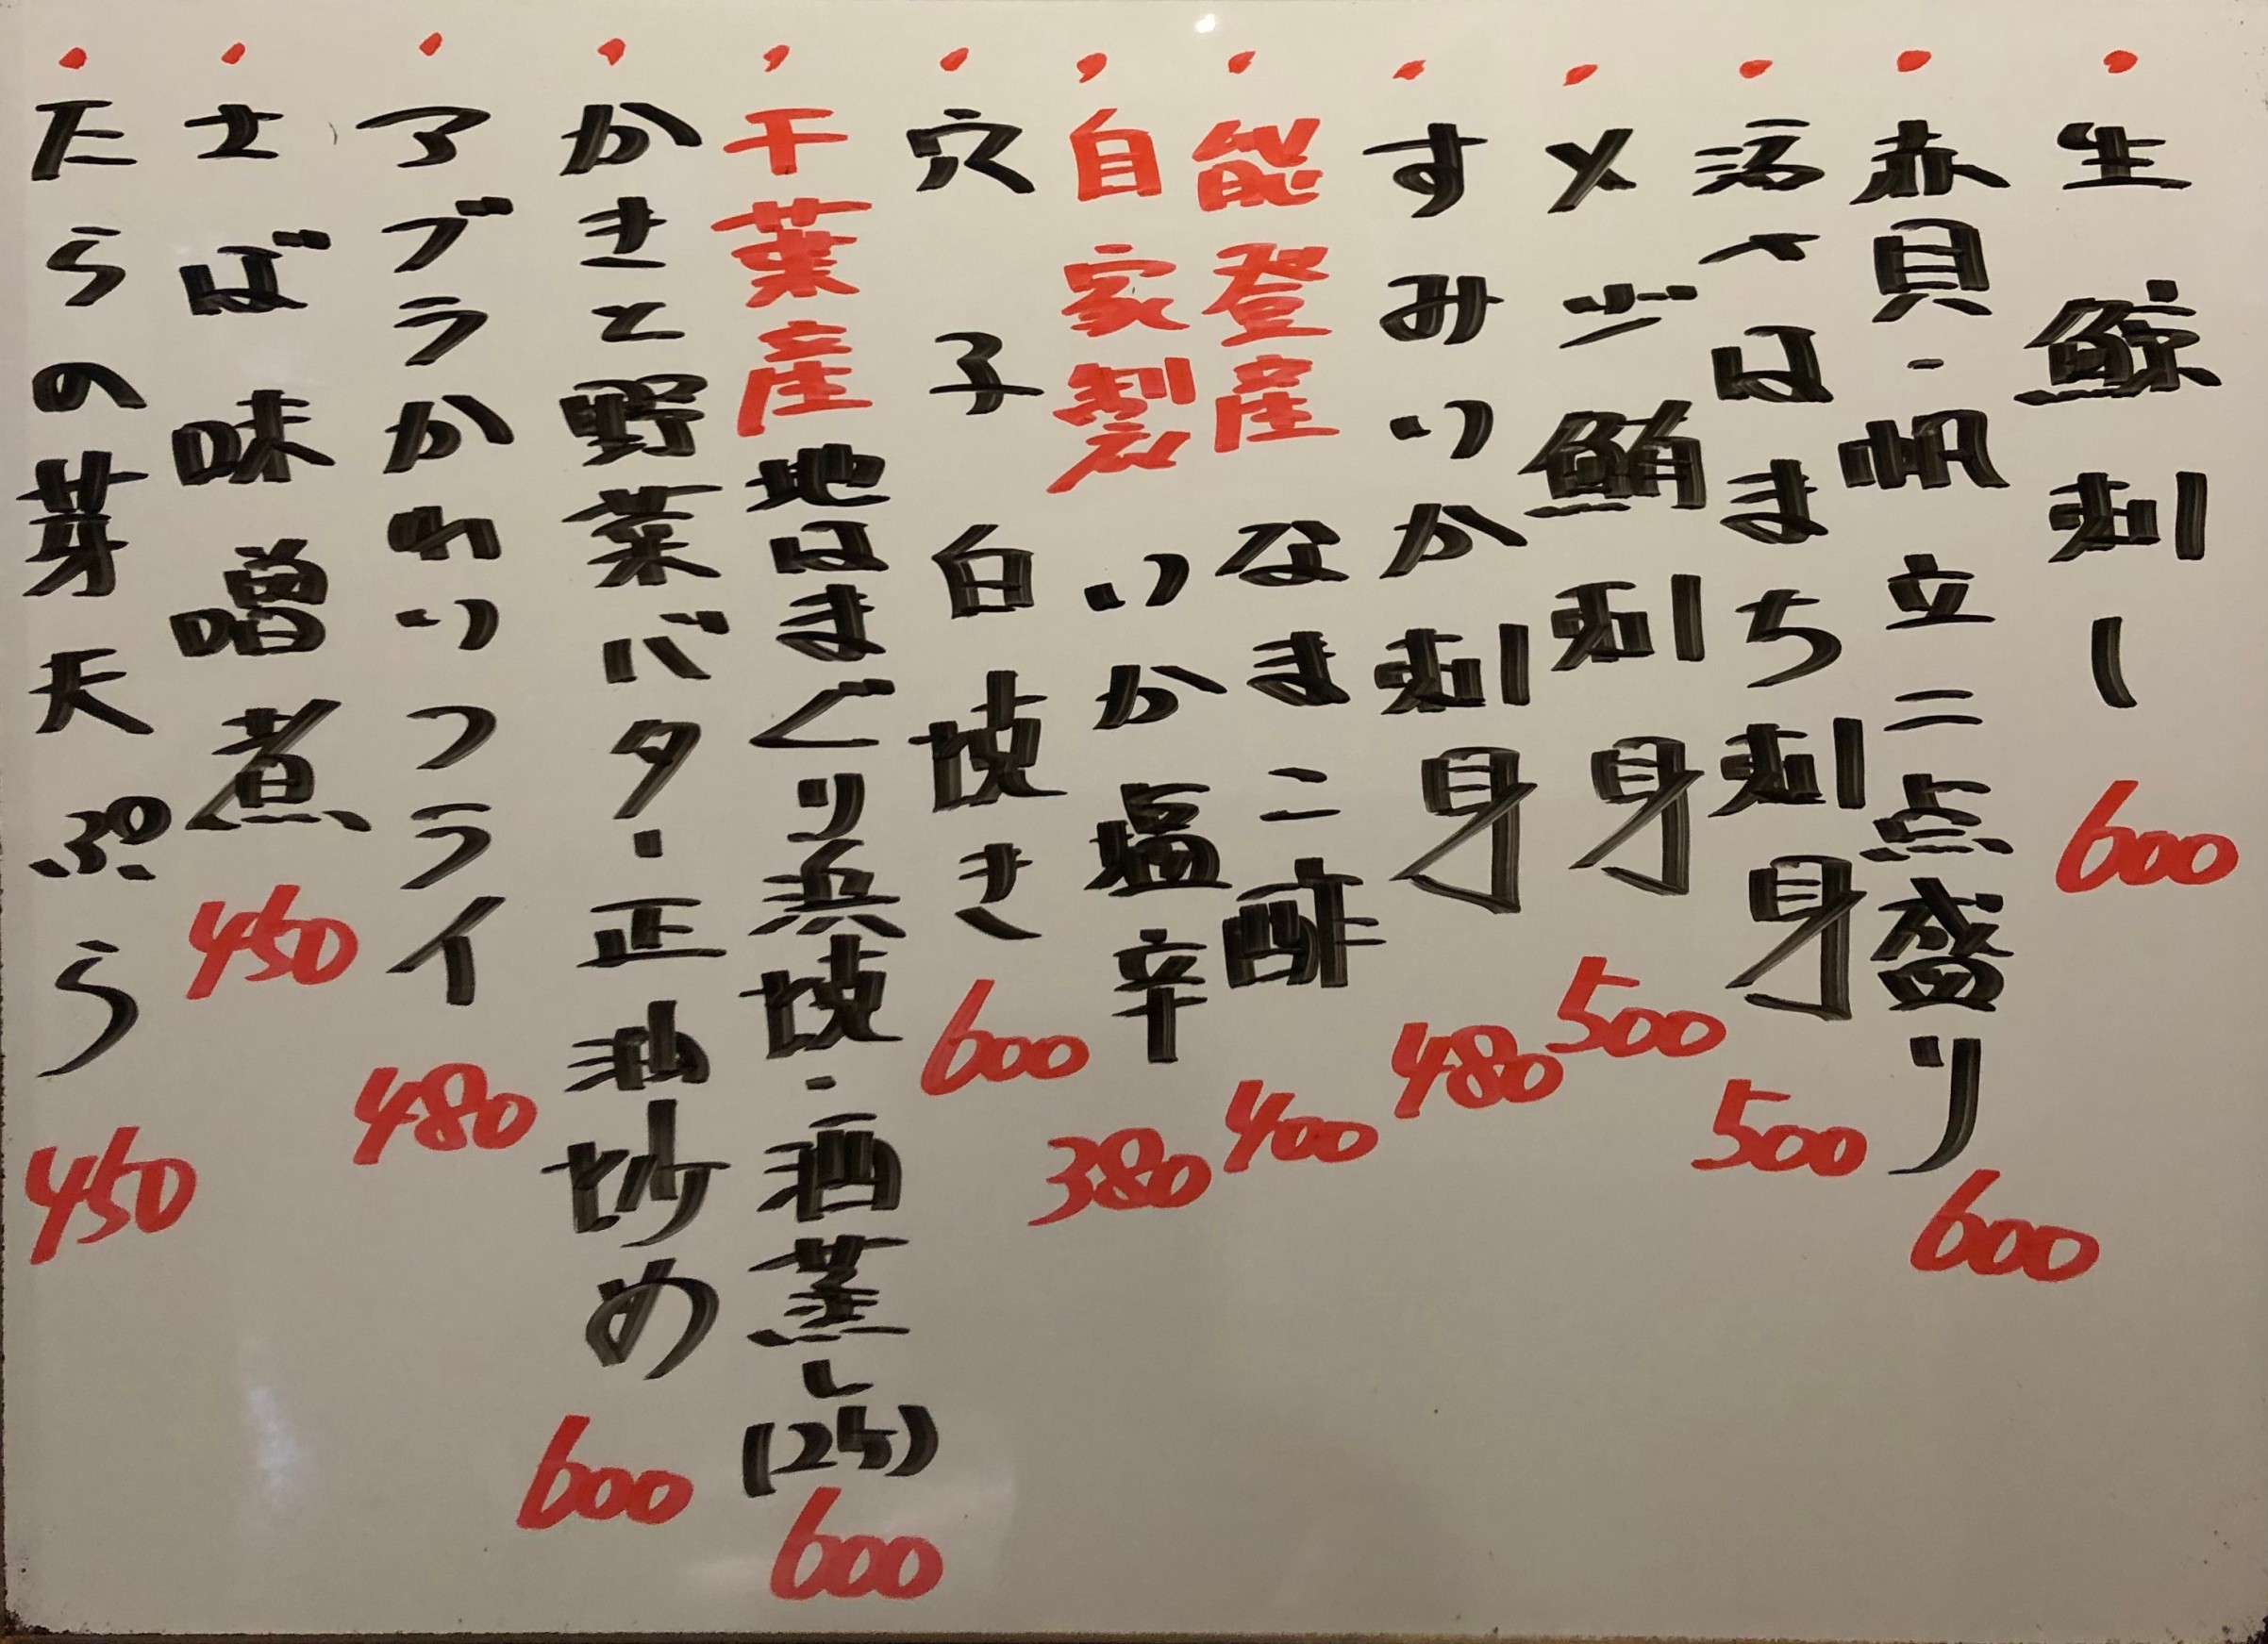 ・生鯨刺し 600
・赤貝・帆立二点盛り 600
・活〆はまち刺身 500
・メジ鮪刺身 500
・すみいか刺身 480
・能登産なまこ酢 400
・自家製いか塩辛 380
・穴子白焼き 600
・千葉産地はまぐり浜焼・酒蒸し(2ケ) 600
・かきと野菜バター正油炒め 600
・アブラかれいフライ 480
・さば味噌煮 450
・たらの芽天ぷら 450